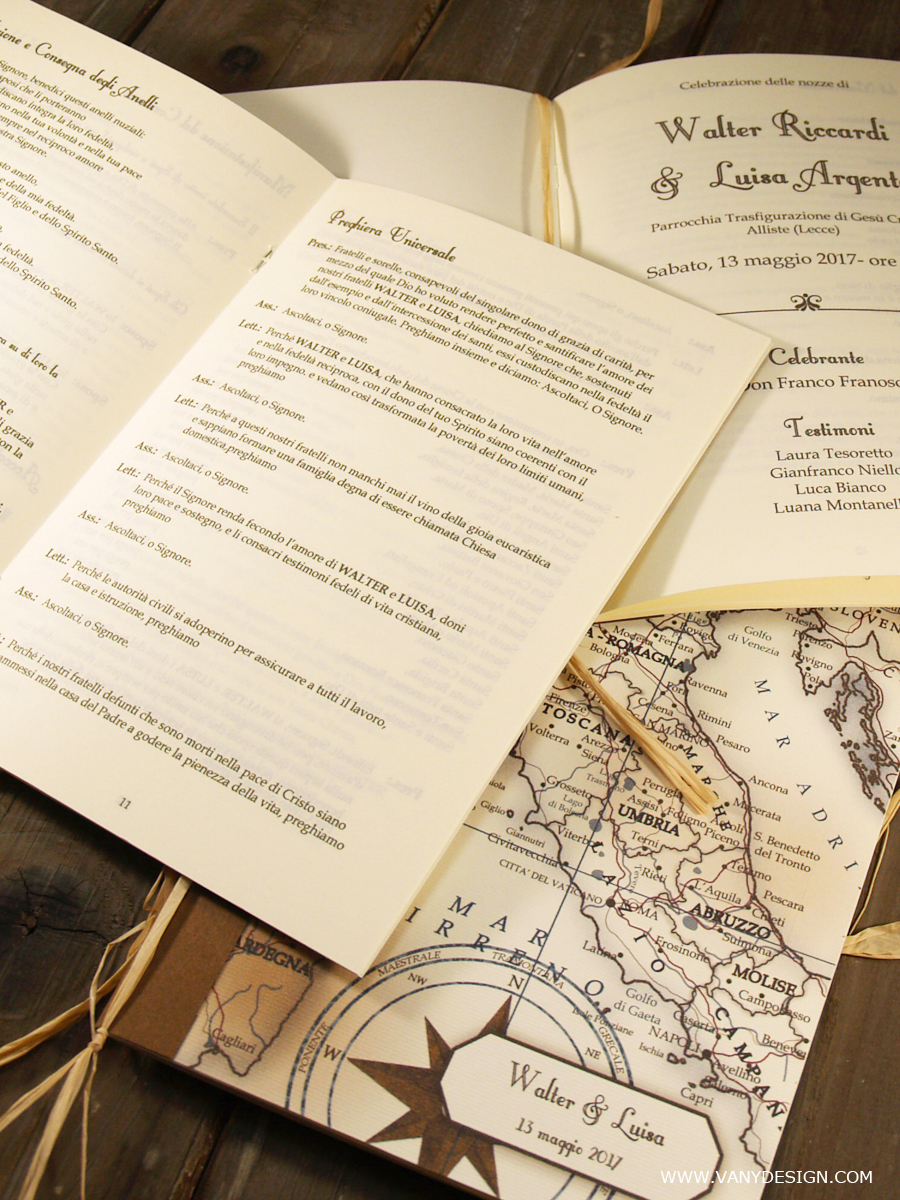 sione e Consegna degli Anelli
Signore, benedici questi anelli nuziali:
sposi che li porteranno
discano integra la loro fedeltà,
no nella tua volontà e nella tua pace
empre nel reciproco amore
stra Signore.
sto anello,
e della mia fedeltà.
del Figlio e dello Spirito Santo.
fedeltà.
dello Spirito Santo.
ra su di loro la
R e
di grazia
on la
Preghiera Universale
Pres.: Fratelli e sorelle, consapevoli del singolare dono di grazia di carità, per
mezzo del quale Dio ho voluto rendere perfetto e santificare l'amore dei
nostri fratelli WALTER e LUISA, chiediamo al Signore che, sostenuti
dall'esempio e dall'intercessione dei santi, essi custodiscano nella fedeltà il
loro vincolo coniugale. Preghiamo insieme e diciamo: Ascoltaci, O Signore.
Ass.: Ascoltaci, o Signore.
Lett.: Perché WALTER e LUISA, che hanno consacrato la loro vita nell'amore
e nella fedeltà reciproca, con il dono del tuo Spirito siano coerenti con il
loro impegno. e vedano così trasformata la povertà dei loro limiti umani,
preghiamo
Ass.: Ascoltaci, o Signore.
Lett.: Perché a questi nostri fratelli non manchi mai il vino della gioia eucaristica
e sappiano formare una famiglia degna di essere chiamata Chiesa
domestica,preghiamo
Ass.: Ascoltaci, o Signore.
Lett.: Perché il Signore renda fecondo l'amore di WALTER e LUISA, doni
loro pace e sostegno, e li consacri testimoni fedeli di vita cristiana,
preghiamo
Ass.: Ascoltaci, o Signore.
Lett.: Perché le autorità civili si adoperino per assicurare a tutti il lavoro,
la casa e istruzione, preghiamo
Ass.: Ascoltaci, o Signore.
Perché i nostri fratelli defunti che sono morti nella pace di Cristo siano
ammessi nella casa del Padre a godere la pienezza della vita, preghiamo
11
Celebrazione delle nozze di
Walter Riccardi
& Luisa Argent
Parrocchia Trasfigurazione di Gesù Cr
Alliste (Lecce)
Sabato, 13 maggio 2017- ore
Celebrante
Don Franco Franoso
Testimoni
Laura Tesoretto
Gianfranco Niello
Luca Bianco
Luana Montanell
SLOVEN
Trieste
Golfo
di Venezia
Rovigno
Pola
Modena
Ferrara
Rovigo
A-ROMAGNA
Bologna
Ravenna
Rimini
SAN MARINO
Pesaro
Firenze
TOSCANA
Volterra
Arezzo
Siena
MARCHE
Ancona
Macerata
MAR ADRI
Grosseto
Lago
di Bolsena
Perugia
Assisi
Foligno
Ascoli
Piceno
S. Benedetto
del Tronto
UMBRIA
Terni
Giglio
Giannutri
Viterbo
Civitavecchia
CITTA' DEL VATICANO
ROMA
Tevere
Rieti
Teramo
L'Aquila
Pescara
Chieti
ABRUZZO
Sulmona
LAZIO
Latina
Frosinone
MOLISE
Campobasso
MAR
TIRRENO
Golfo
di Gaeta
Isole Ponziane
Caserta
NAPOLI
Beneve
Avellino
Salerno
Ischia
Capri
CAMPAN
RDEGNA
Cagliari
MAESTRALE
TRAMONTANA
GRECALE
PONENTE
NW
N
NE
W
Walter & Luisa
13 maggio 2017
WWW.VANYDESIGN.COM